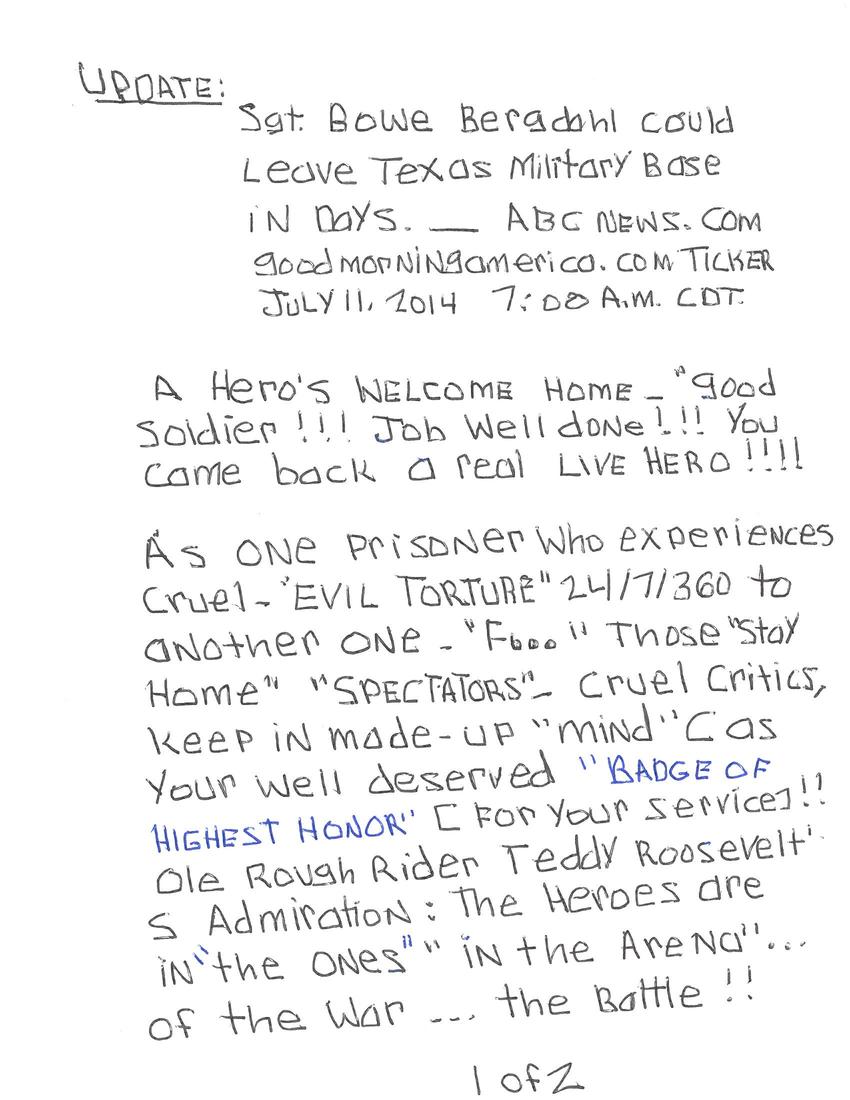 UPDATE:
Sgt. Bowe Bergdahl could
Leave Texas Military Base
IN DAYS. __ ABC NEWS. COM
goodmorNiNgamerica. COM TICKER
JULY 11, 2014 7:00 A.M. CDT.
A Hero's WELCOME HOME _ "good
Soldier !!! Job Well doNe !!! You
came back a real LIVE HERO !!!!
As ONE PrisoNer Who experieNces
Cruel- "EVIL TORTURE" 24/7/360 to
aNother ONE - "F... " Those "Stay
Home" "SPECTATORS"- Cruel Critics,
Keep iN made-up "mind" C as
Your well deserved "BADGE OF
HIGHEST HONOR" [ For Your service]!!
Ole Rough Rider Teddy Roosevelt'
s Admiration: The Heroes are
iN "the ONes" " iN the AreNa"...
of the War ... the Battle !!
1 of 2